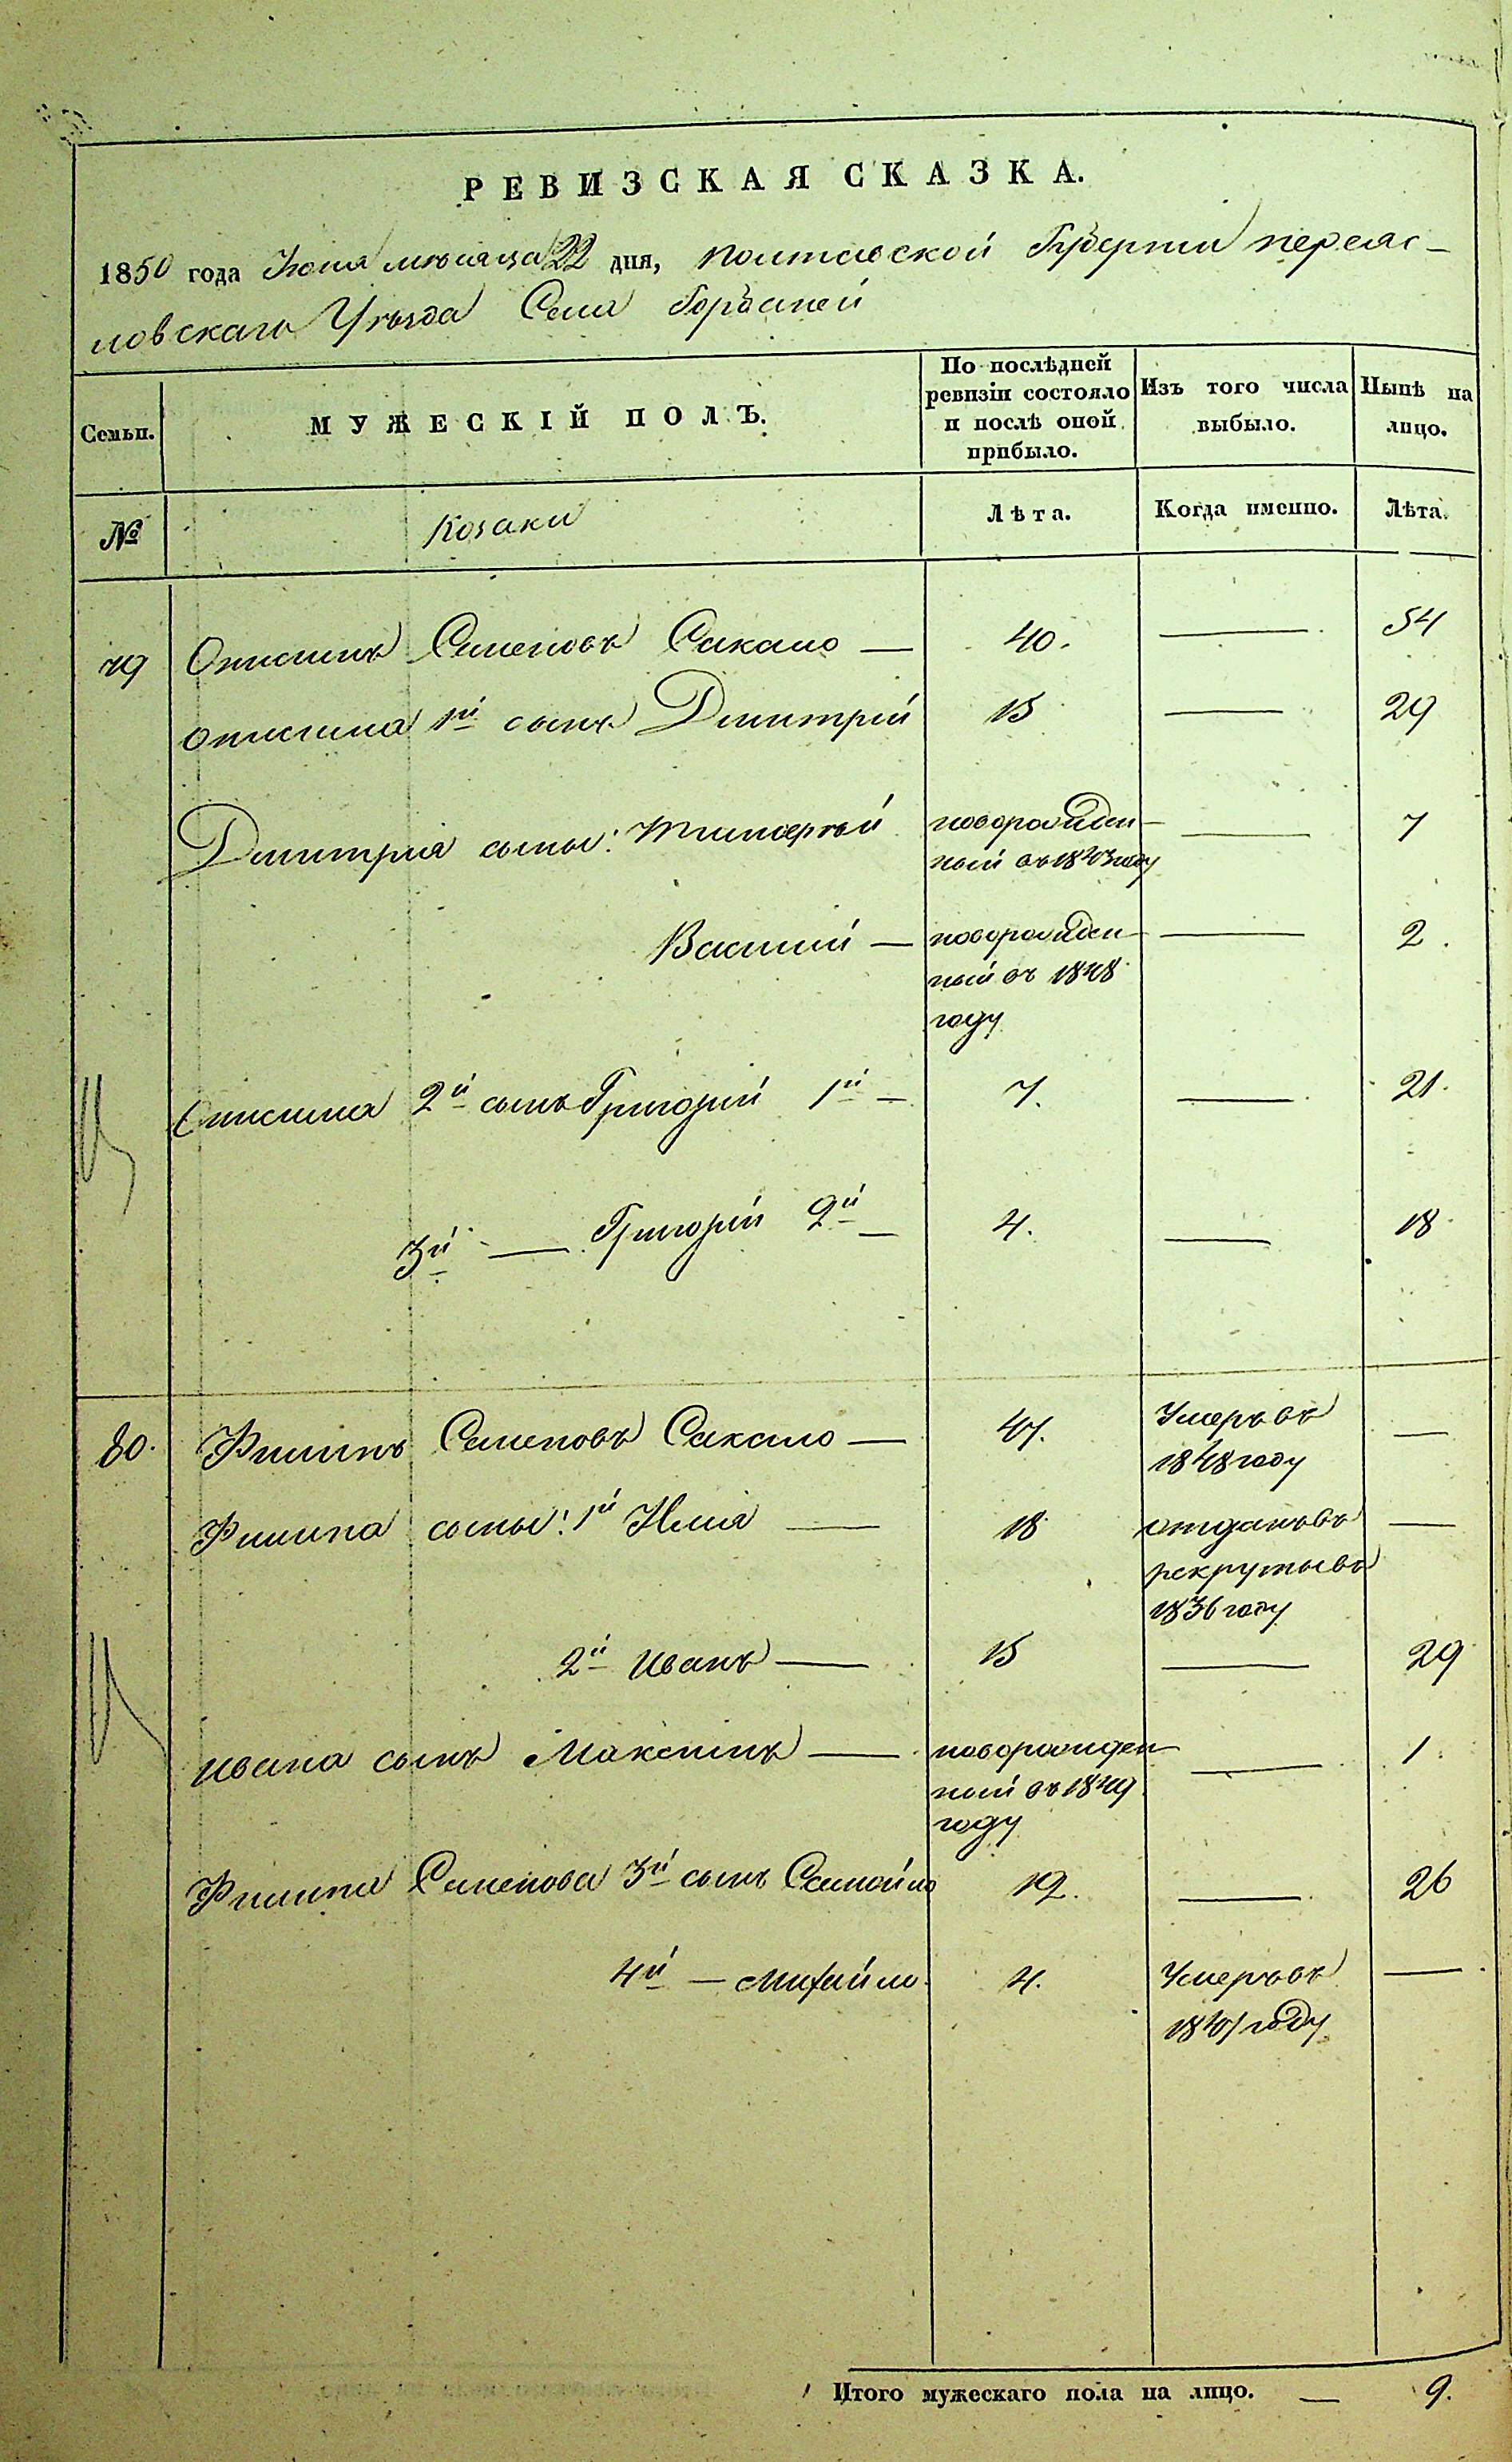 РЕВИЗСКАЯ СКАЗКА.
1850 года Июня мѣсяца 22 дня, Полтавской Губерніи переяс-
ловскаго Уѣзда Села Горбаней
Семьи.
МУЖЕСКІЙ ПОЛЪ.
По послѣдней ревизіи состояло и послѣ оной прибыло.
Изъ того числа выбыло.
Нынѣ на лицо.
№
Козаки
Лѣта.
Когда именно.
Лѣта.
79 Онисимъ Семеновъ Сакало — 40. — 54
Онисима 1й сынъ Дмитрій 15 — 29
Дмитрія сыны: Тимофѣй новорожден- — 7
ный въ 1843 году
Василій — новорожден- — 2.
ный въ 1848
году
Онисима 2й сынъ Григорій 1й — 7. — 21.
3й — Григорій 2й — 4. — 18
80. Филипъ Семеновъ Сакало — 47. Умеръ въ —
1848 году
Филипа сыны: 1й Илія — 18 отданъ въ —
рекруты въ
1836 году
2й Иванъ — 15 — 29
Ивана сынъ Максимъ — новорожден- — 1.
ный въ 1849
году
Филипа Семенова 3й сынъ Самойло 12. — 26
4й — Михайло 4. Умеръ въ —
году
Итого мужескаго пола на лицо. — 9.